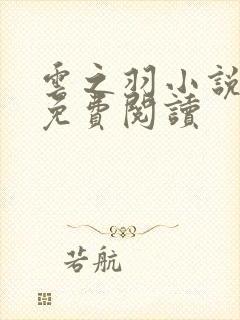 雲之羽小說
免費閱讀
若航